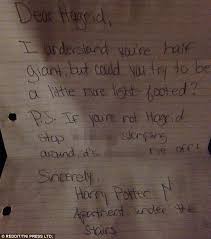 Dear Hagrid,
I understand you're half
giant, but could you try to be
a little more light footed?
P.S. If you're not Hagrid
stop stomping
around, it's me off!
Sincerely,
Harry Potter
Apartment under the
stairs
© REDDIT/TNI PRESS LTD.